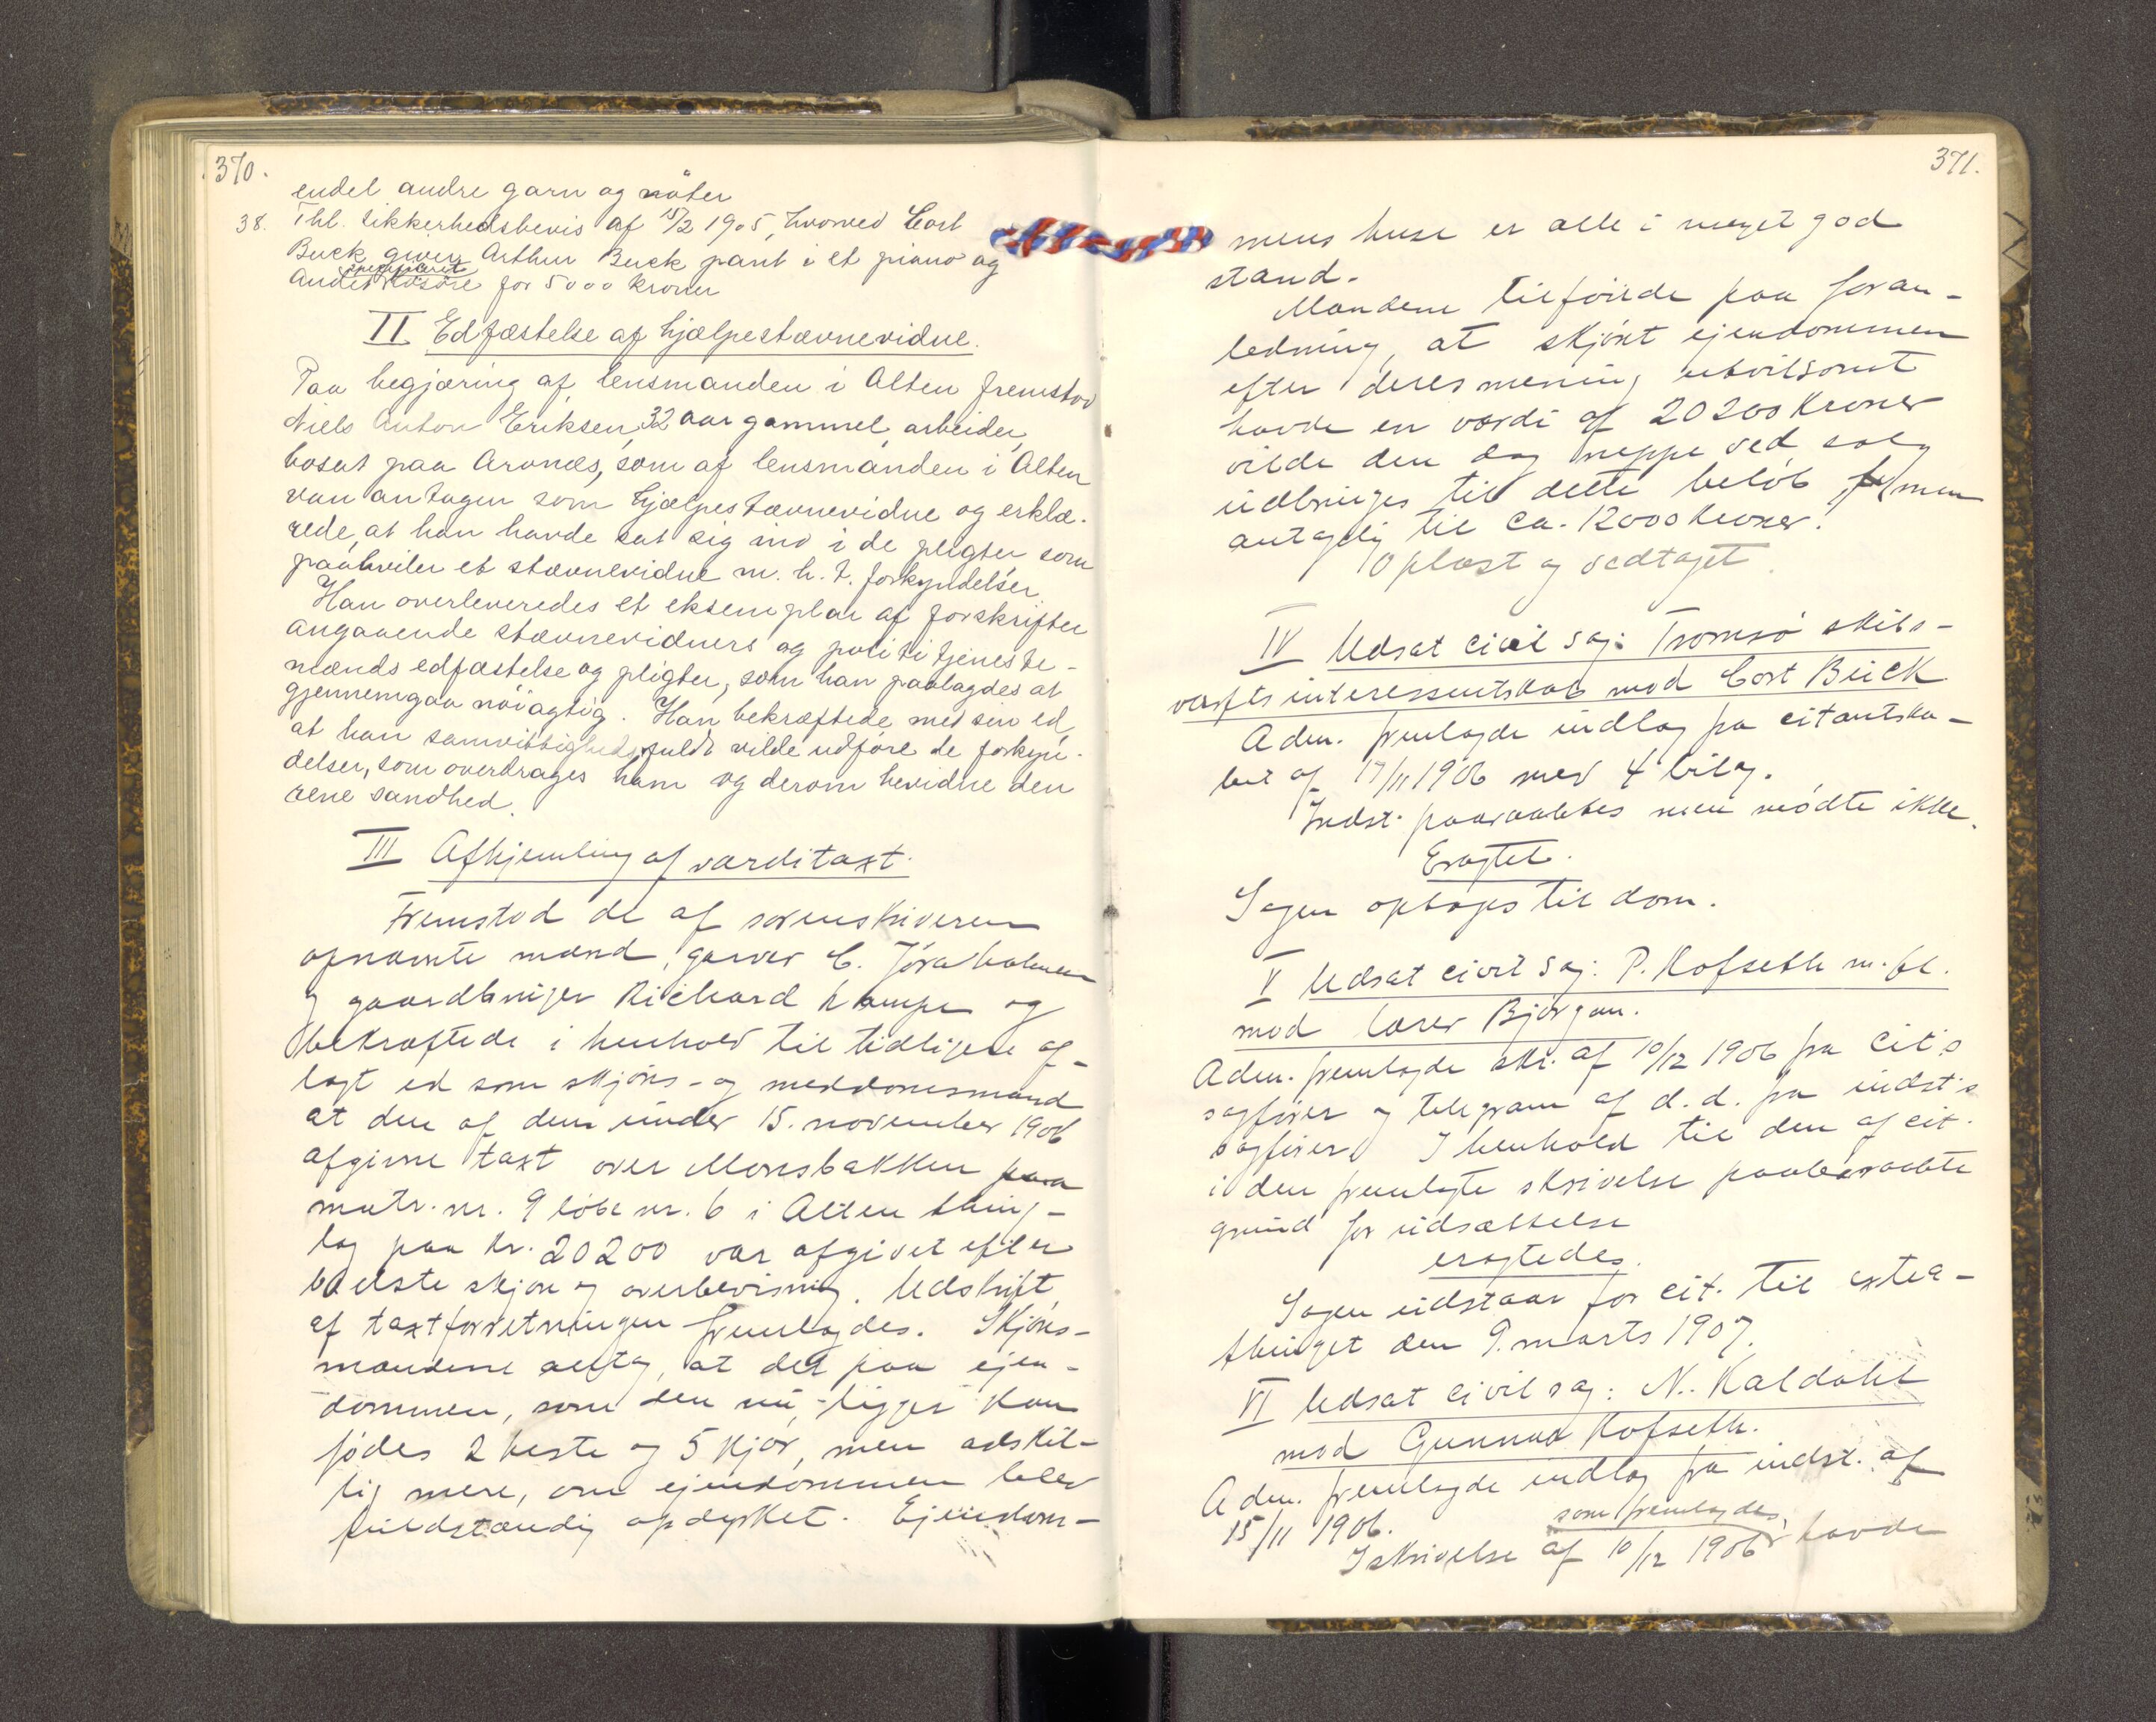 370.
endel andre garn og nöter
38. Thl. sikkerhedsbevis af 15/2 1905, hvorved Cort
Buck giver Arthur Buck pant i et piano og
specificeret
andet lösöre for 5000 kroner
II Edfæstelse af hjælpestævnevidne.
Paa begjæring af lensmanden i Alten fremstod
Niels Anton Eriksen, 32 aar gammel, arbeider,
bosat paa Aronæs, som af lensmanden i Alten
var antagen som hjælpestævnevidne og erklæ-
rede, at han havde sat sig ind i de pligter som
paahviler et stævnevidne m. h. t. forkyndelser.
Han overleveredes et eksemplar af forskrifter
angaaende stævnevidners og polititjeneste-
mænds edfæstelse og pligter, som han paalagdes at
gjennemgaa nöiagtig. Han bekræftede med sin ed,
at han samvittighedsfuldt vilde udföre de forkyn-
delser, som overdrages ham og derom bevidne den
rene sandhed.
III Afhjemling af værditaxt.
Fremstod de af sorenskriveren
opnævnte mænd, garver C. Jöraholmen
og gaardbruger Richard Kampe og
bekræftede i henhold til tidligere af-
lagt ed som skjöns- og meddomsmænd
at den af dem under 15. november 1906
afgivne taxt over Monsbakken
matr. nr. 9 löbe nr. 6 i Alten thing-
lag paa kr. 20200 var afgivet efter
bedste skjön og overbevisning. Udskrift
af taxtforretningen fremlagdes. Skjöns-
mændene antog, at der paa ejen-
dommen, som den nu ligger kan
födes 2 heste og 5 kjör, men adskil-
lig mere, om ejendommen blev
fuldstændig opdyrket. Ejendom-
371.
mens huse er alle i meget god
stand.
Mændene tilföiede paa foran-
ledning, at skjönt ejendommen
efter deres mening utvilsomt
havde en værdi af 20200 kroner
vilde den dog neppe ved salg
udbringes til dette belöb, men
antagelig til ca. 12000 kroner.
Oplæst og vedtaget.
IV Udsat civil sag: Tromsö skibs-
værfts interessentskab mod Cort Buck
Adm. fremlagde indlæg fra citantska-
bet af 17/11 1906 med 4 bilag.
Indst. paaraabtes men mödte ikke.
Eragtet.
Sagen optages til dom.
V Udsat civil sag: P. Rofseth m. fl.
mod lærer Björgan.
Adm. fremlagde skr. af 10/12 1906 fra cit's
sagförer og telegram af d. d. fra indst's
sagförer. I henhold til den af cit.
i den fremlagte skrivelse paaberaabte
grund for udsættelse
eragtedes.
Sagen udstaar for cit. til extra-
thinget den 9. marts 1907.
VI Udsat civil sag: N. Kaldahl
mod Gunnar Rofseth.
Adm. fremlagde indlæg fra indst. af
15/11 1906.
som fremlagdes,
I skrivelse af 10/12 1906 havde